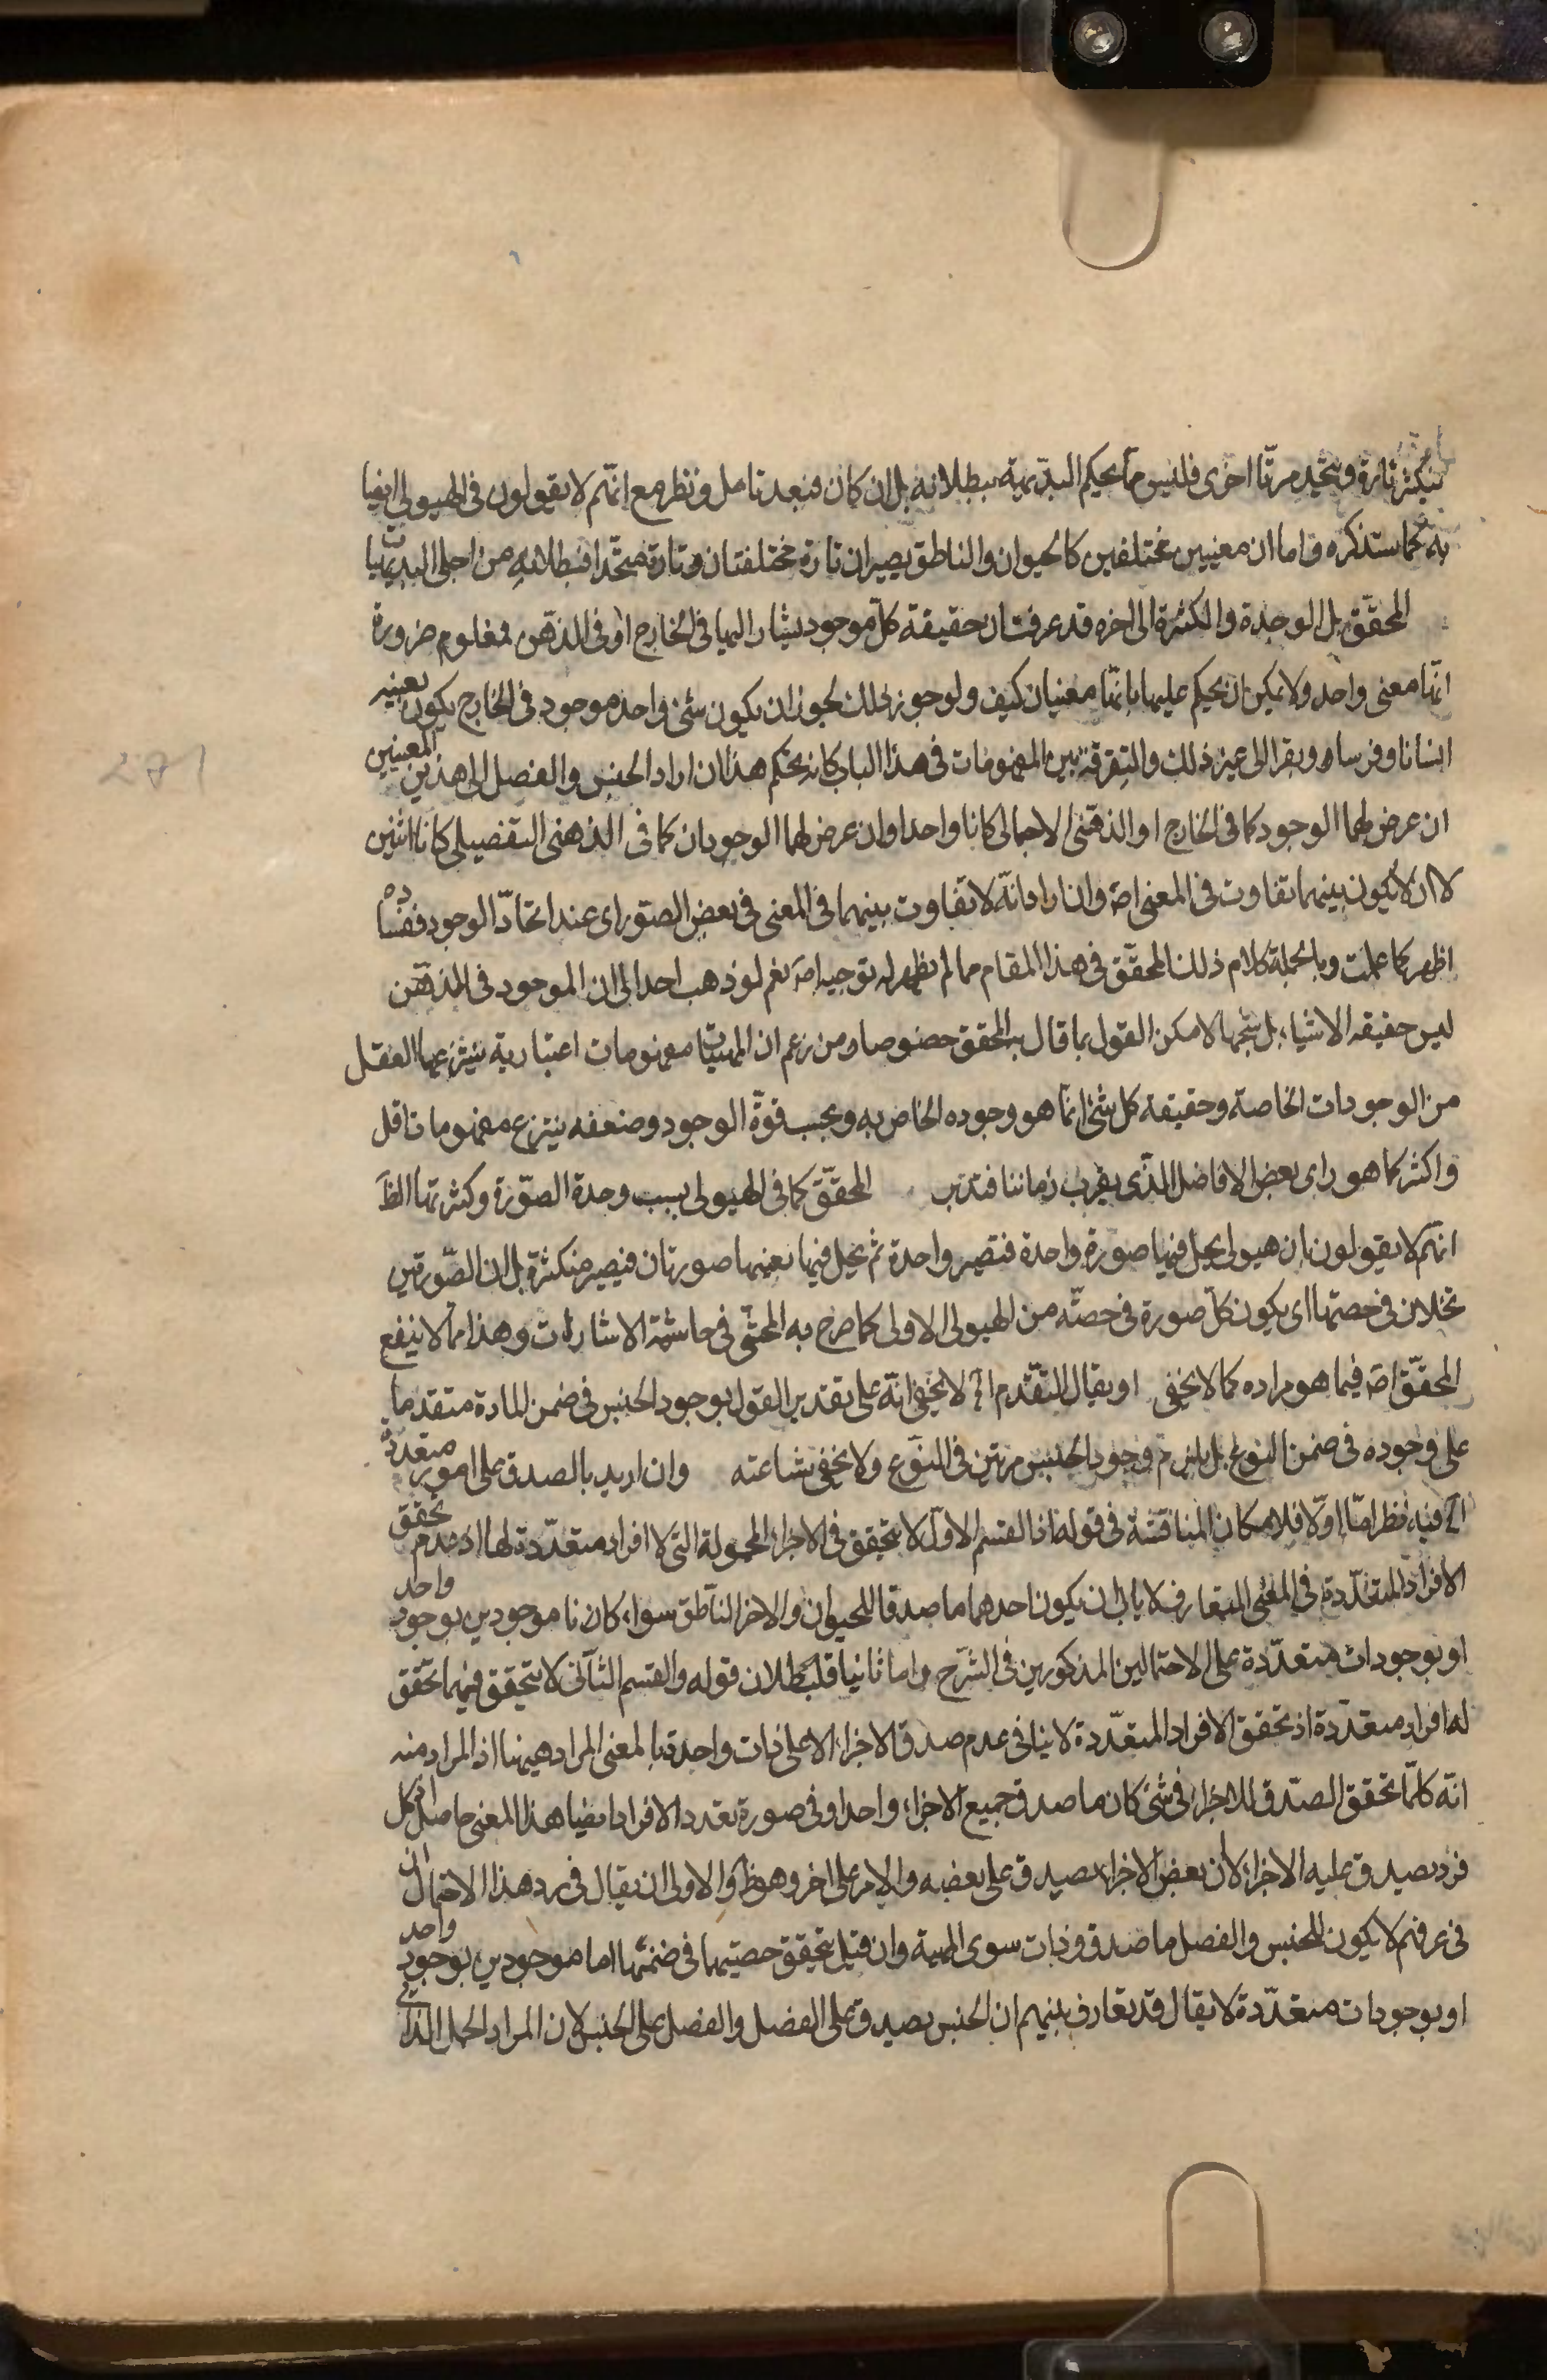 يتكثر تارة ويتحد مرتا اخرى فليس مما يحكم البديهة ببطلانه بل ان كان فبعد تامل ونظر مع انهم لا يقولون فى الهيولى ايضا
به كما ستذكره واما ان معنيين مختلفين كالحيوان والناطق يصيران تارة مختلفتان وتارة متحدا فبطلانه من اجلى البديهيات
المحقق بل الوحدة والكثرة الى اخره قد عرفت ان حقيقة كل موجود يشار اليها فى الخارج او فى الذهن فمعلوم ضرورة
انها معنى واحد ولا يمكن ان يحكم عليها بانها معنيان كيف ولو جوز ذلك لجوز ان يكون شئ واحد موجود فى الخارج يكون بعينه
انسانا وفرسا وبقرا الى غير ذلك والتفرقة بين المفهومات فى هذا الباب كانه تحكم هذا ان اراد الجنس والفصل الى هذين المعنيين
ان عرض لهما الوجود كما فى الخارج او الذهنى الاجمالى كانا واحدا وان عرض لهما الوجودان كما فى الذهنى التفصيلى كانا اثنين
لا ان لا يكون بينهما تفاوت فى المعنى اصه وان اراد انه لا تفاوت بينهما فى المعنى فى بعض الصور اى عند اتحاد الوجود ففساده
اظهر كما علمت وبالجملة كلام ذلك المحقق فى هذا المقام مما لم يظهر له توجيه اصه نعم لو ذهب احد الى ان الموجود فى الذهن
ليس حقيقه الاشياء بل شبحها لامكن القول بما قال به المحقق خصوصا ومن زعم ان المهيات مفهومات اعتبارية ينتزعها العقل
من الوجودات الخاصة وحقيقة كل شئ انما هو وجوده الخاص به وبحسب قوة الوجود وضعفه ينتزع مفهومات اقل
واكثر كما هو راى بعض الافاضل الذى بقرب زماننا فتدبر المحقق كما فى الهيولى بسبب وحدة الصورة وكثرتها الظ
انهم لا يقولون بان هيولى يحل فيها صورة واحدة فتصير واحدة ثم يحل فيها بعينها صورتان فيصير متكثرة بل ان الصورتين
تحلان فى حصتها اى يكون كل صورة فى حصته من الهيولى الاولى كما صرح به المحشى فى حاشية الاشارات وهذا مما لا ينفع
المحقق اصه فيما هو مراده كما لا يخفى او يقال التقدم الخ لا يخفى انه على تقدير القول بوجود الجنس فى ضمن المادة متقدما
على وجوده فى ضمن النوع بل يلزم وجود الجنس مرتين فى النوع ولا يخفى شناعته وان اريد بالصدق على امور متعددة
الخ فيه نظر اما اولا فلامكان المناقشة فى قوله اذ القسم الاول لا يتحقق فى الاجزاء المحمولة التى لا افراد متعددة لها اذ عدم تحقق
الافراد المتعددة فى المعنى المتعارف لا يابى ان يكون احدهما ما صدقا للحيوان والاخر الناطق سواء كانا موجودين بوجود واحد
او بوجودات متعددة على الاحتمالين المذكورين فى الشرح واما ثانيا فلبطلان قوله والقسم الثانى لا يتحقق فيما تحقق
له افراد متعددة اذ تحقق الافراد المتعددة لا ينافى عدم صدق الاجزاء الا على ذات واحدة بالمعنى المراد ههنا اذ المراد منه
انه كلما تحقق الصدق للاجزاء فى شئ كان ما صدق جميع الاجزاء واحدا وفى صورة تعدد الافراد ايضا هذا المعنى حاصل اذ كل
فرد يصدق عليه الاجزاء لا ان بعض الاجزاء يصدق على بعضه والاخر على اخر وهو ظ والاولى ان يقال فى رد هذا الاحتمال ان
فى عرفهم لا يكون للجنس والفصل ما صدق وذات سوى المهية وان قيل بتحقق حصتيهما فى ضمنها اما موجودين بوجود واحد
او بوجودات متعددة لا يقال قد تعارف بينهم ان الجنس يصدق على الفصل والفصل على الجنس لان المراد الحمل الذاتى